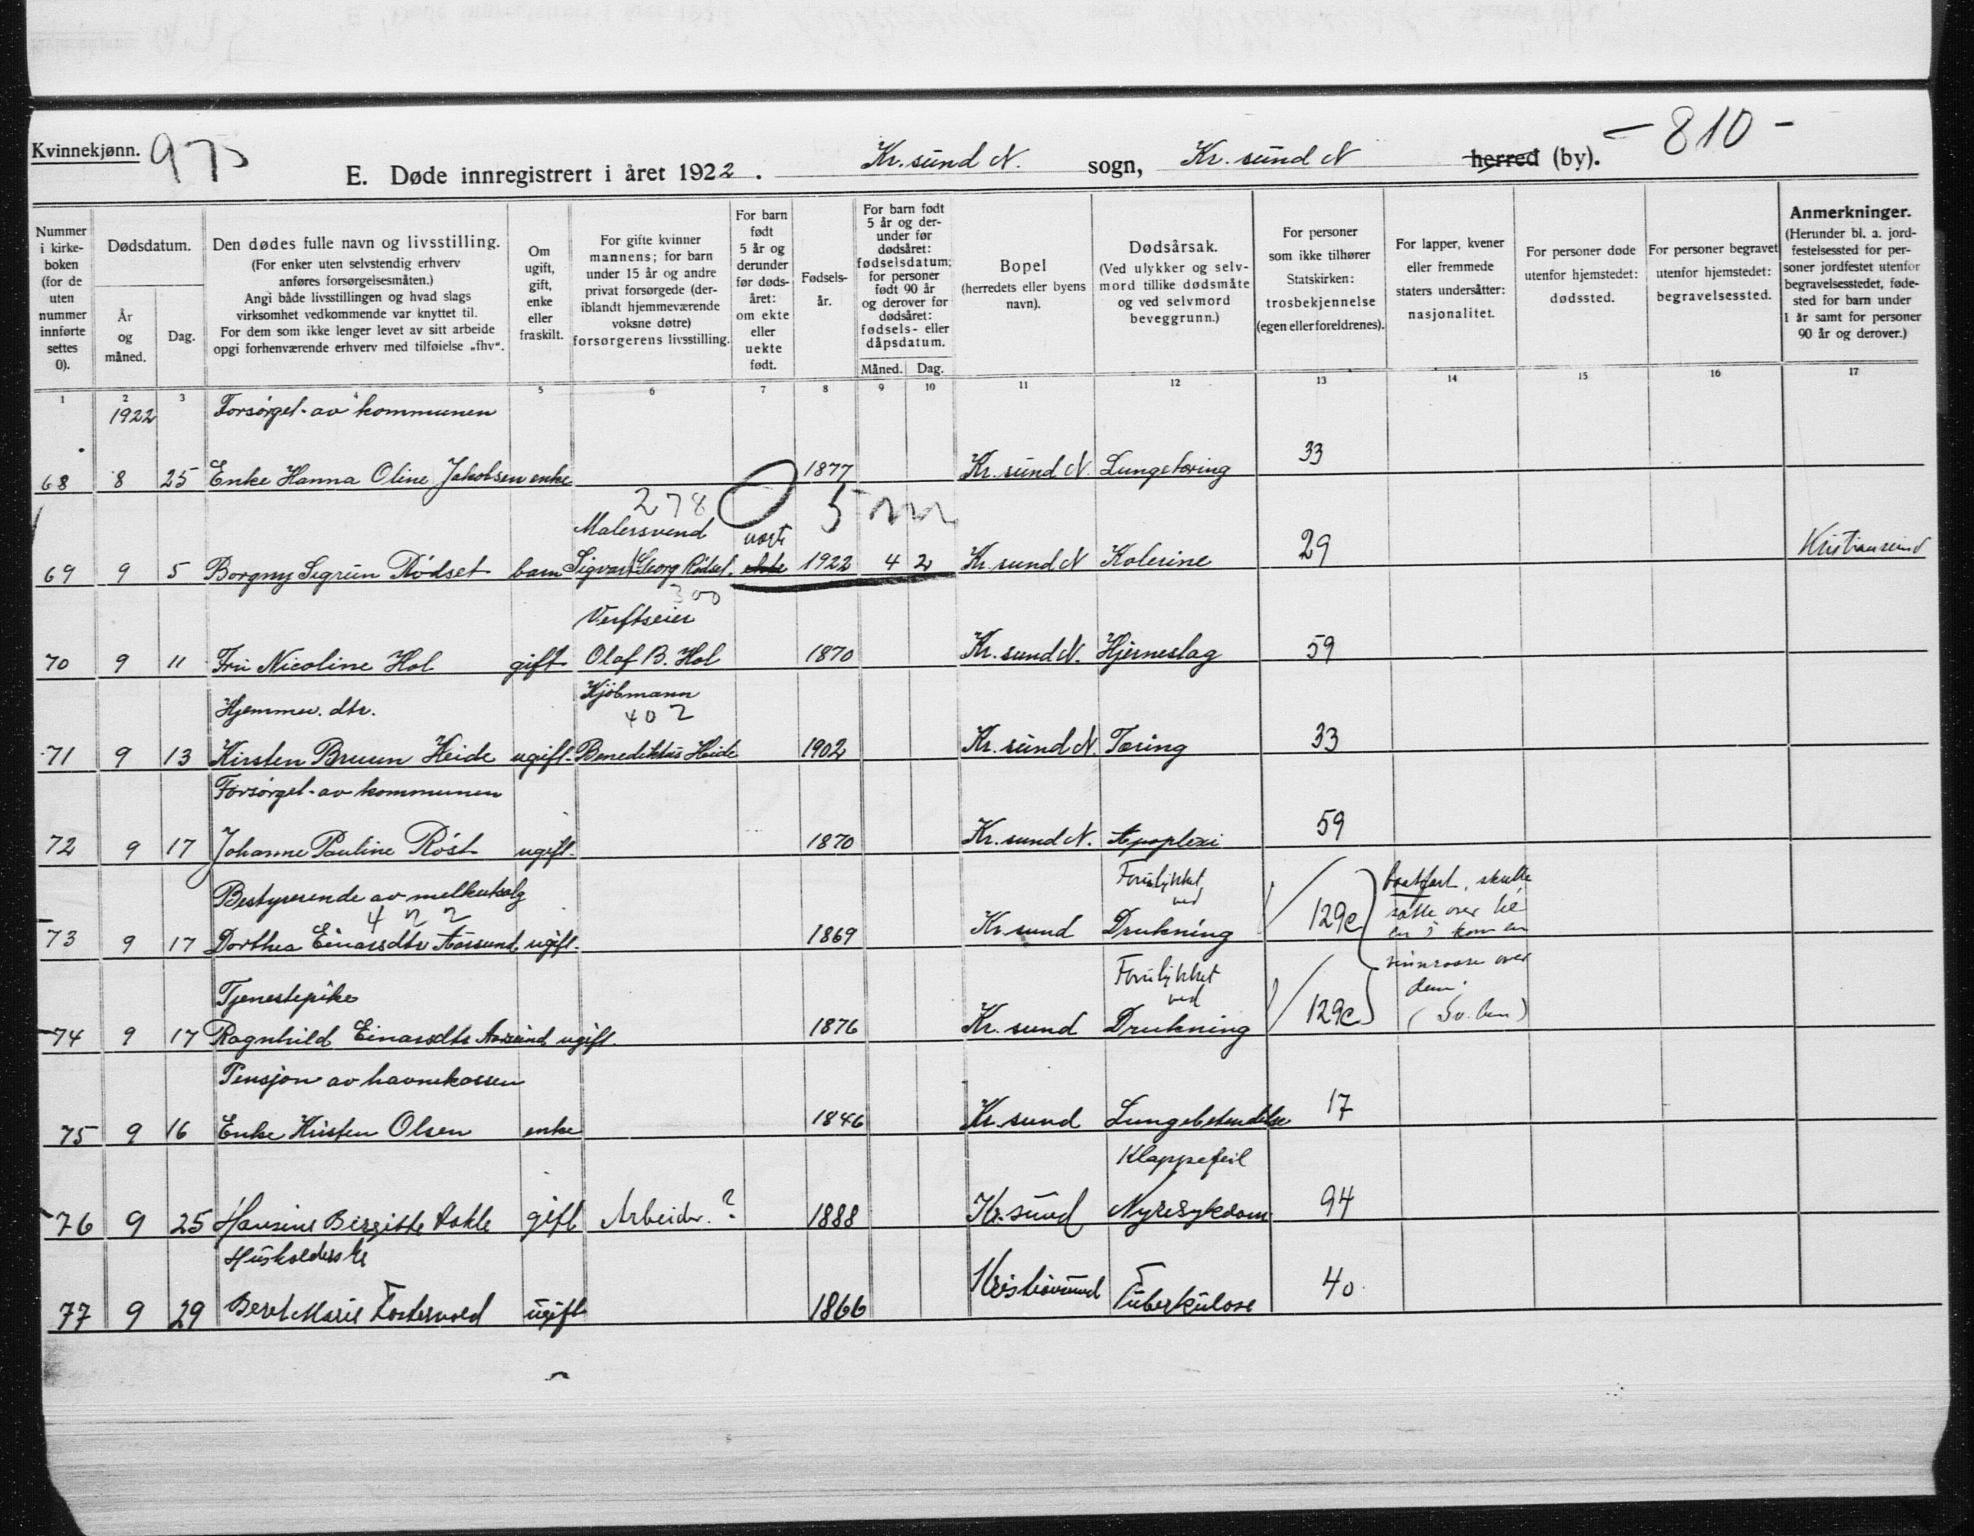 Kvinnekjønn. 975
- 810 -
E. Døde innregistrert i året 1922. Kr.sund N. sogn, Kr. sund N herred (by).
Nummer i kirkeboken (for de uten nummer innførte settes 0).
Dødsdatum.
År og måned.
Dag.
Den dødes fulle navn og livsstilling.
(For enker uten selvstendig erhverv anføres forsørgelsesmåten.)
Angi både livsstillingen og hvad slags virksomhet vedkommende var knyttet til.
For dem som ikke lenger levet av sitt arbeide opgi forhenværende erhverv med tilføielse „fhv“.
Om ugift, gift, enke eller fraskilt.
For gifte kvinner mannens; for barn under 15 år og andre privat forsørgede (deriblandt hjemmeværende voksne døtre) forsørgerens livsstilling.
For barn født 5 år og derunder før dødsåret: om ekte eller uekte født.
Fødselsår.
For barn født 5 år og derunder før dødsåret: fødselsdatum; for personer født 90 år og derover før dødsåret: fødsels- eller dåpsdatum.
Måned. Dag.
Bopel
(herredets eller byens navn).
Dødsårsak.
(Ved ulykker og selvmord tillike dødsmåte og ved selvmord beveggrunn.)
For personer som ikke tilhører Statskirken: trosbekjennelse (egen eller foreldrenes).
For lapper, kvener eller fremmede staters undersåtter: nasjonalitet.
For personer døde utenfor hjemstedet: dødssted.
For personer begravet utenfor hjemstedet: begravelsessted.
Anmerkninger.
(Herunder bl. a. jordfestelsessted for personer jordfestet utenfor begravelsesstedet, fødested for barn under 1 år samt for personer 90 år og derover.)
1 2 3 4 5 6 7 8 9 10 11 12 13 14 15 16 17
1922 Forsørget av kommunen
68 8 25 Enke Hanna Oline Jakobsen enke 1877 Kr. sund N. Lungetæring 33
278 5 m
Malersvend uegte
69 9 5 Borgny Sigrun Rødset barn Sigvart Georg Rødset. ekte 1922 4 2 Kr. sund N Kolerine 29 Kristiansund
300
Verftseier
70 9 11 Fru Nicoline Hol gift Olaf B. Hol 1870 Kr. sund N. Hjerneslag 59
Hjemmev. dtr. Kjøbmann
402
71 9 13 Kirsten Bruun Heide ugift. Benediktus Heide 1902 Kr. sund N. Tæring 33
Forsørget av kommunen
72 9 17 Johanne Pauline Røst ugift. 1870 Kr. sund N. Apoplexi 59
Bestyrerende av melkeutsalg Forulykket ved
422
73 9 17 Dorthea Einarsdtr Aarsund. ugift. 1869 Kr. sund Drukning 129e
baatfart, skulde
over
kom en
over
dem.
Tjenestepike Forulykket ved
74 9 17 Ragnhild Einarsdtr Aarsund ugift. 1876 Kr. sund Drukning 129e
Pensjon av havnekassen
75 9 16 Enke Kristen Olsen enke 1846 Kr. sund Lungebetendelse 17
Klappefeil
76 9 25 Hansine Birgitte gift Arbeider. ? 1888 Kr. sund Nyresykdom 94
Husholderske
77 9 29 Beret Marie Fostervold ugift 1866 Kristiansund Tuberkulose 40.